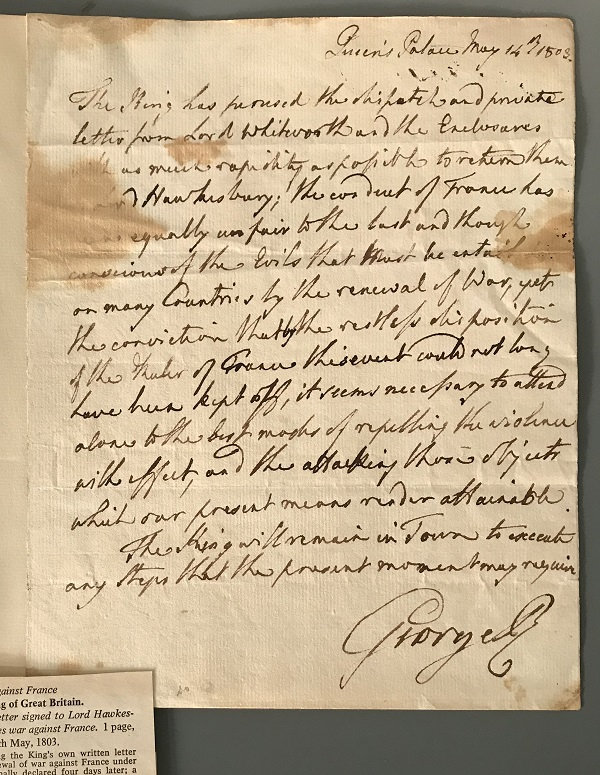 Queen's Palace May 14th 1803.
The King has perused the dispatch and private
letter from Lord Whitworth and the Enclosures
as much rapidity as possible to return them
Hawkesbury; the conduct of France has
equally unfair to the last and though
conscious of the Evils that must be entail
on many Countries by the renewal of War, yet
the conviction that by the restless disposition
of the Ruler of France this event could not long
have been kept off, it seems necessary to attend
alone to the best modes of repelling the violence
with effect, and the attacking those objects
which our present means render attainable.
The King will remain in Town to execute
any steps that the present moment may require
George R
gainst France
g of Great Britain.
etter signed to Lord Hawkes-
es war against France. 1 page,
th May, 1803.
ng the King's own written letter
ewal of war against France under
nally declared four days later; a